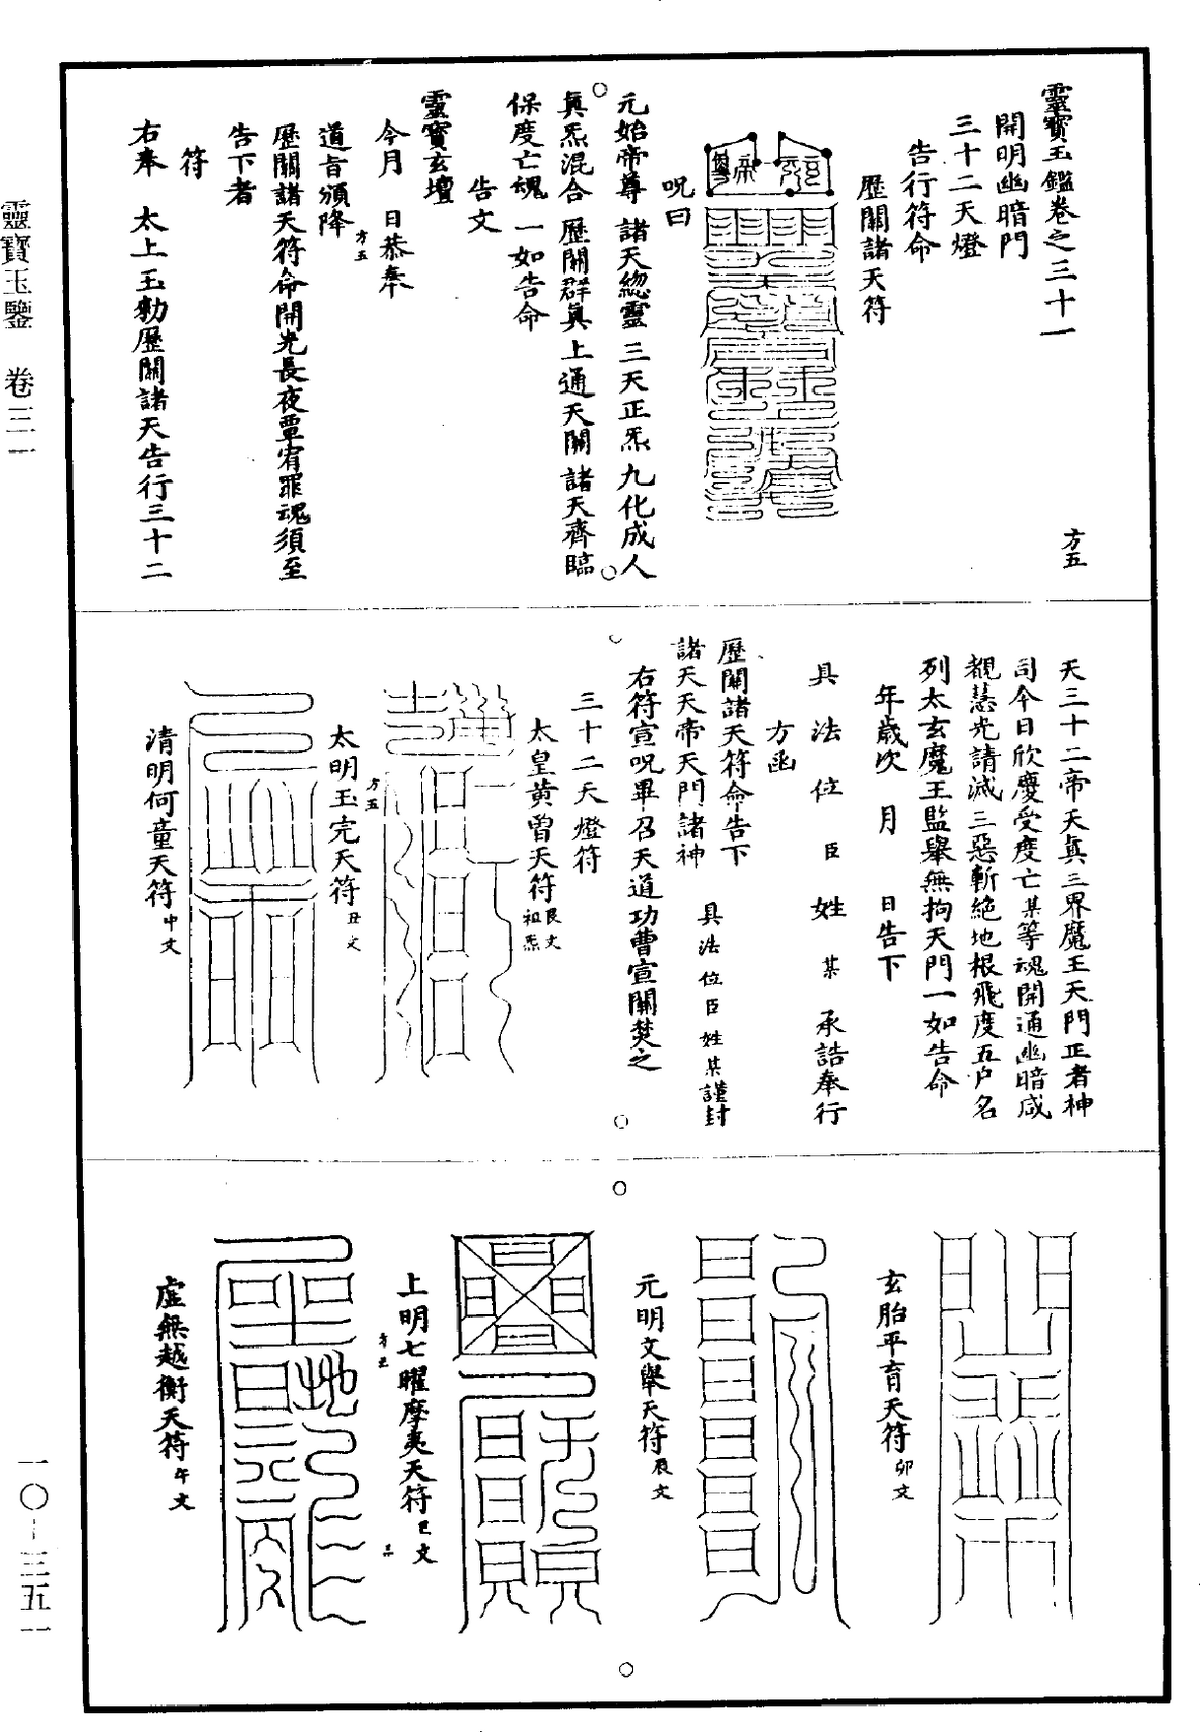 靈寶玉鑑卷之三十一
方五
開明幽暗門
三十二天燈
告行符命
歷關諸天符
呪曰
元始帝尊 諸天總靈 三天正炁 九化成人
眞炁混合 歷關群眞 上通天關 諸天齊臨
保度亡魂 一如告命
告文
靈寶玄壇
今月 日恭奉
道旨頒降
方五
歷關諸天符命開光長夜覃宥罪魂須至
告下者
符
右奉 太上玉勅歷關諸天告行三十二
天三十二帝天眞三界魔王天門正者神
司今日欣慶受度亡某等魂開通幽暗咸
覩慧光請滅三惡斬絕地根飛度五户名
列太玄魔王監舉無拘天門一如告命
年歲次 月 日告下
具法位臣姓某承誥奉行
方函
歷關諸天符命告下
諸天天帝天門諸神 具法位臣姓某謹封
右符宣呪畢召天道功曹宣關焚之
三十二天燈符
太皇黃曾天符 艮文 祖炁
太明玉完天符 丑文
方五
清明何童天符 中文
玄胎平育天符 卯文
元明文舉天符 辰文
上明七曜摩夷天符 巳文
虛無越衡天符 午文
靈寶玉鑒 卷三一
一〇-三五一